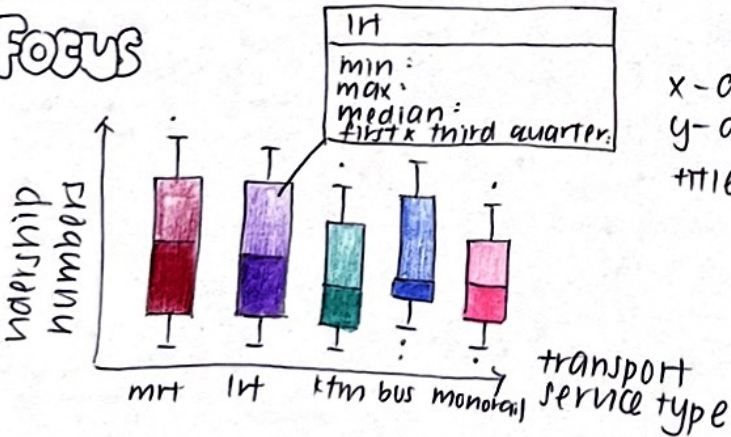 FOCUS
lrt
min :
max :
median :
first & third quarter:
x -
y -
title
ridership
numbers
mrt lrt ktm bus monorail
transport
service type